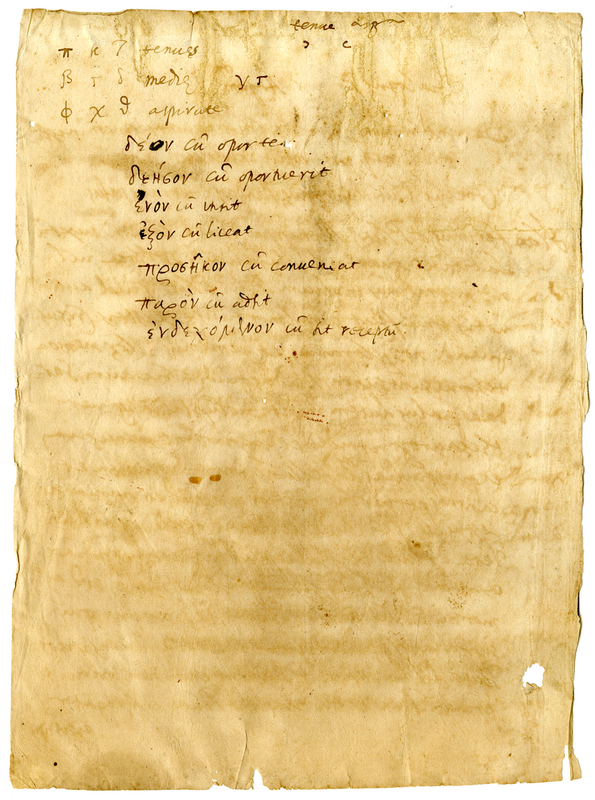 tenue
ɔ c
π κ τ tenues
β γ δ medię γ Γ
φ χ θ aspirate
δέον cū oporte
δεῆσον cū oportuerit
ἐνὸν cū insit
ἐξὸν cū liceat
προσῆκον cū conueniat
παρὸν cū adsit
ἐνδεχόμενον cū sit receptū